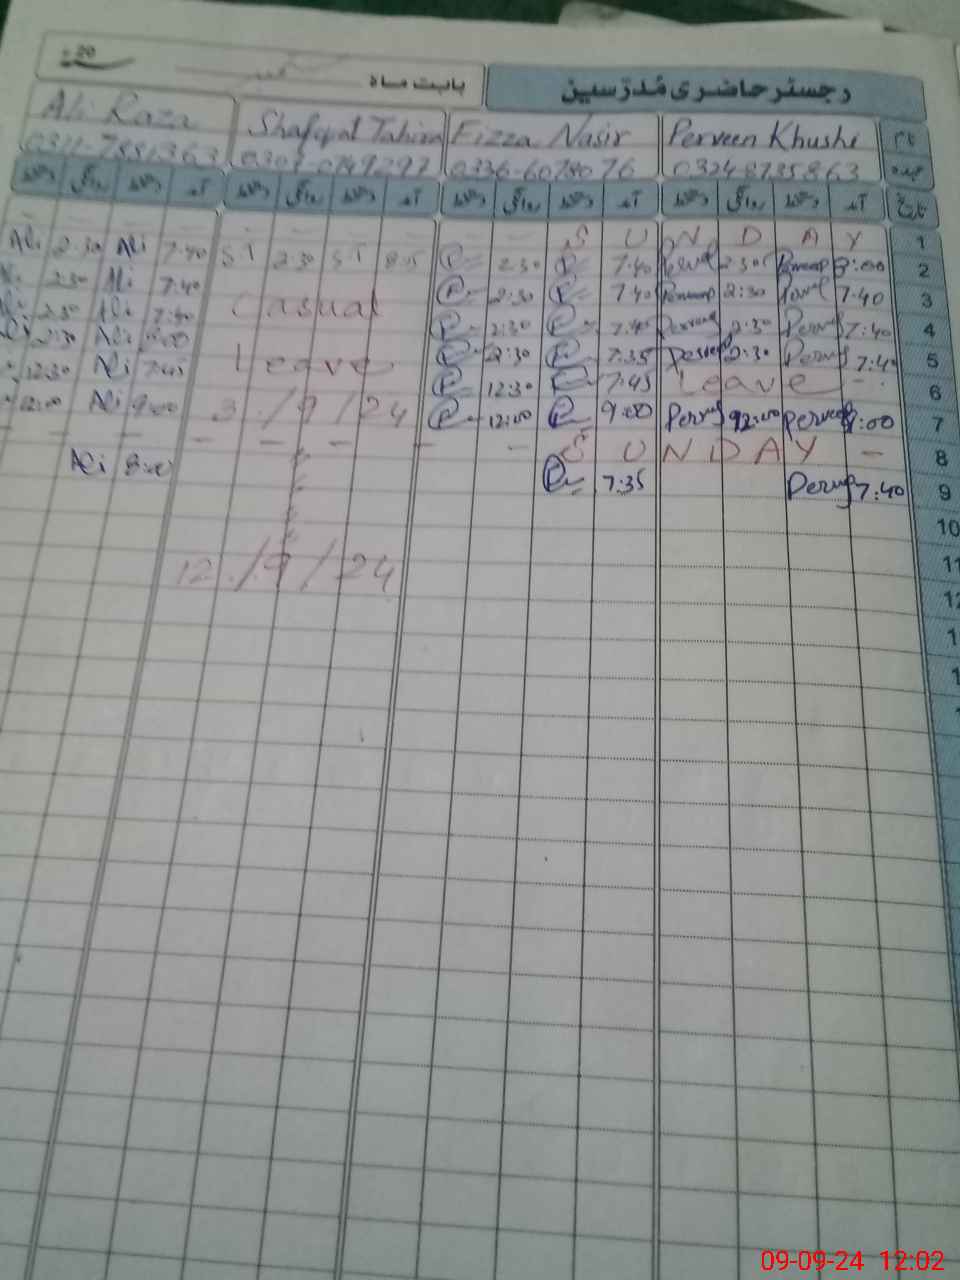 رجسٹر حاضری مُدرّسین بابت ماہ 20ء
نام Perveen Khushi Fizza Nasir Shafqat Tahira Ali Raza
عہدہ 03248735863 0336-6078076 0307-0149297 0311-7881363
تاریخ آمد دستخط روانگی دستخط آمد دستخط روانگی دستخط آمد دستخط روانگی دستخط آمد دستخط روانگی دستخط
1 S U N D A Y
2 8:00 2:30 7:40 2:30 8:15 S.T 2:30 S.T 7:40 Ali 2:30 Ali
3 7:40 2:30 7:40 2:30 Casual 7:40 Ali 2:30
4 7:40 2:30 7:40 2:30 7:40 Ali 2:30
5 7:40 2:30 7:35 2:30 Leave 8:00 Ali 2:30
6 Leave 7:45 12:30 7:45 Ali 12:30
7 9:00 12:00 9:00 12:00 3/9/24 9:00 Ali 12:00
8 S U N D A Y
9 7:40 7:35 8:00 Ali
10
11 12/9/24
12
09-09-24 12:02